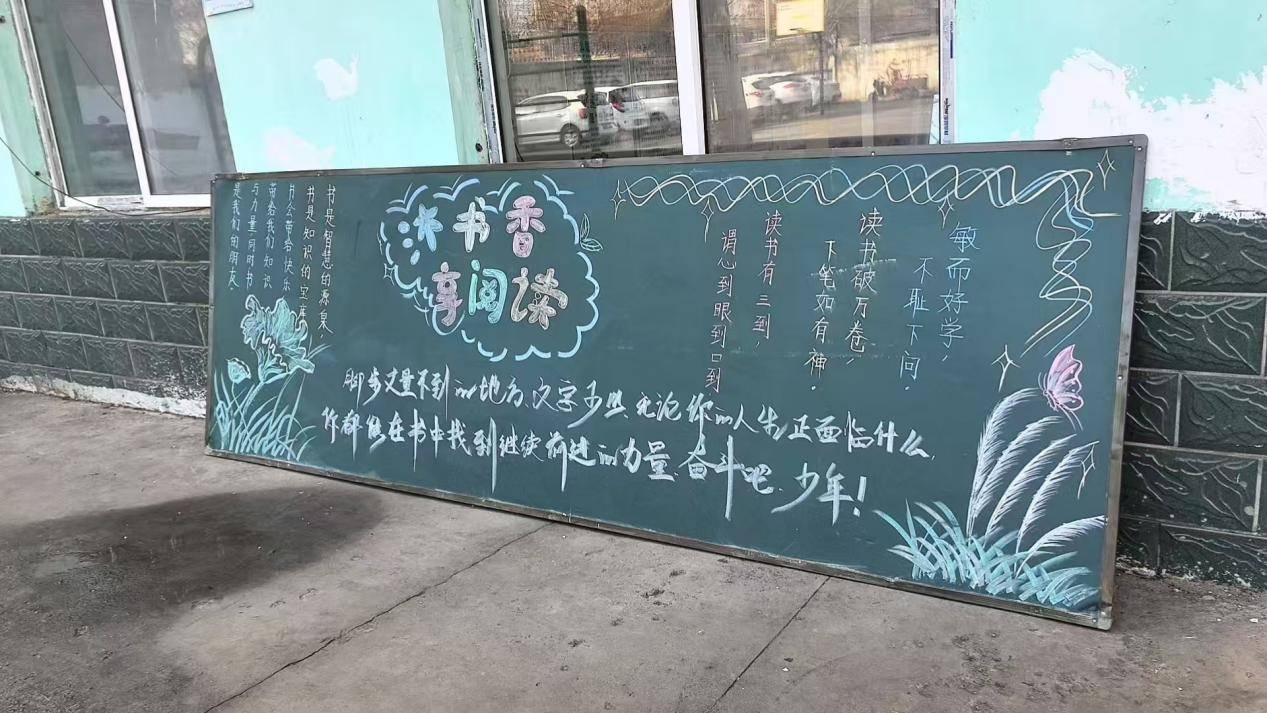 沐书香
享阅读
书是智慧的源泉
书是知识的宝库
书会带给快乐
带给我们知识
与力量,同时书
是我们的朋友
敏而好学,
不耻下问。
读书破万卷,
下笔如有神。
读书有三到,
谓心到眼到口到
脚步丈量不到的地方、文字 无论你的人生正面临什么,
你都能在书中找到继续前进的力量,奋斗吧、少年!